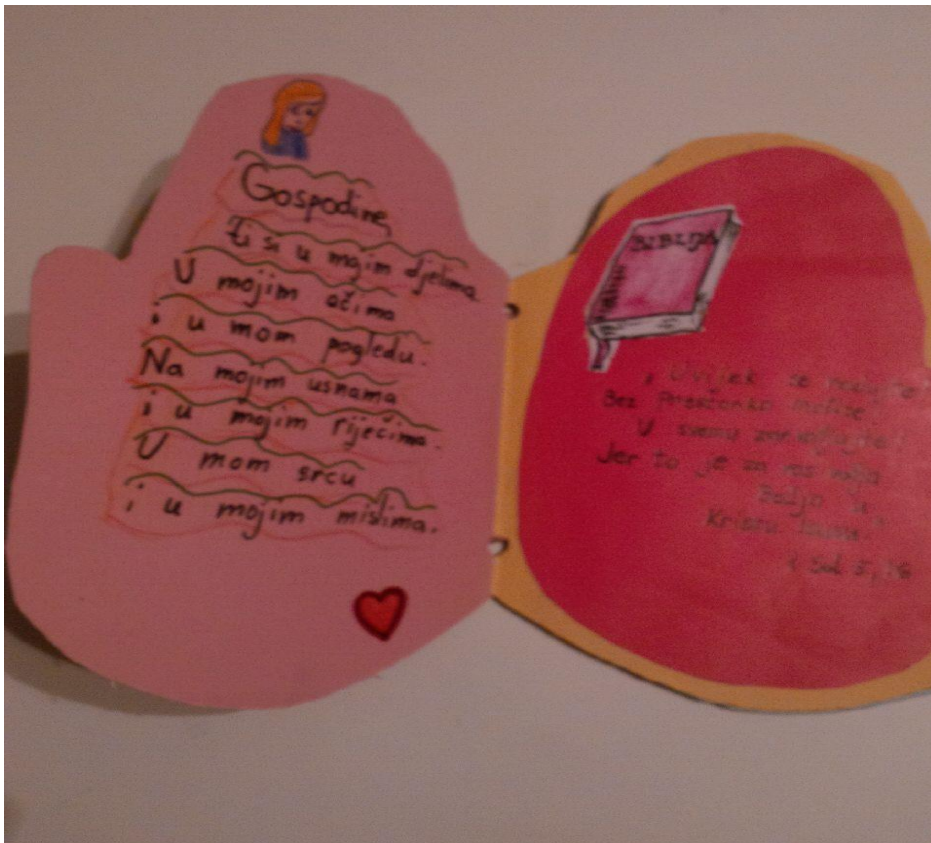 Gospodine,
ti si u mojim djelima
U mojim očima
i u mom pogledu.
Na mojim usnama
i u mojim riječima.
U mom srcu
i u mojim mislima.
BIBLIJA
Uvijek se radujte!
Bez prestanka molite!
U svemu zahvaljujte!
Jer to je za vas volja
Božja u
Kristu Isusu.
1 Sol 5, 16